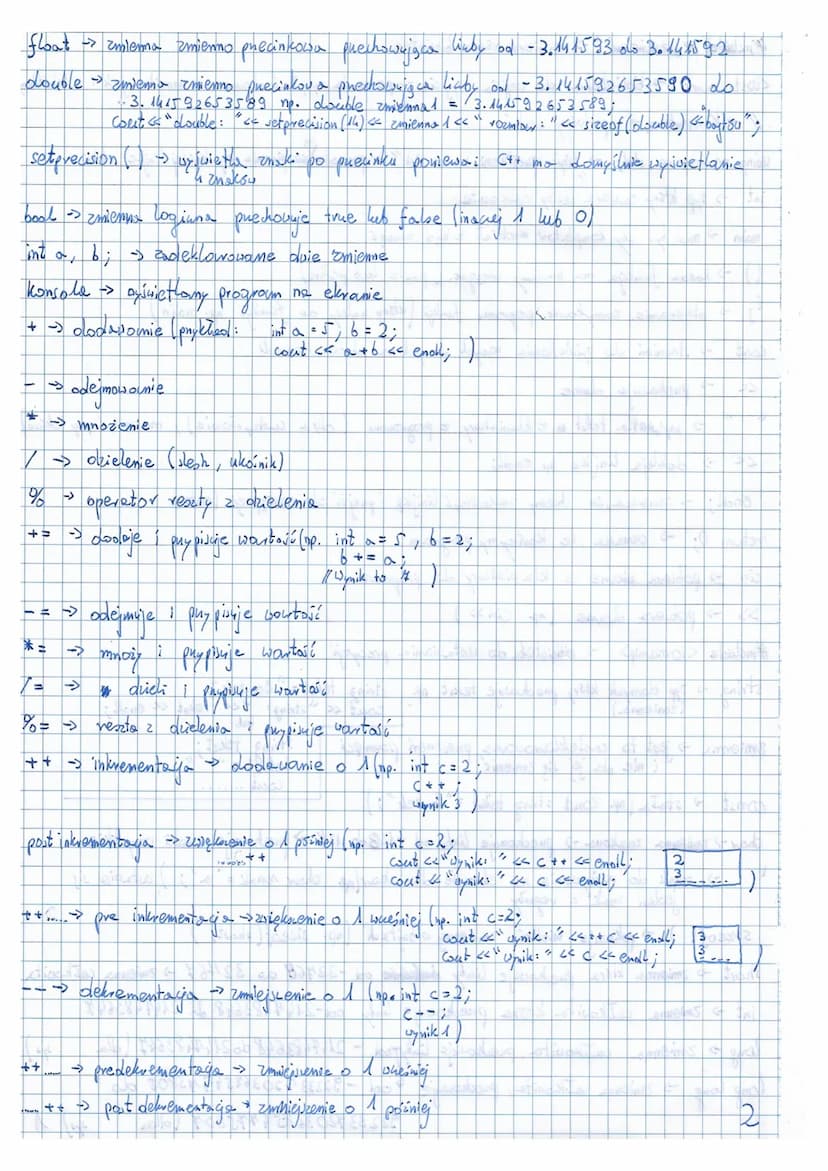 float -> zmienna zmienno przecinkowa przechowująca liczby od -3.141593 do 3.141592
double -> zmienna zmienno przecinkowa przechowująca liczby od -3.141592653590 do
3.141592653589 np. double zmienna1 = 3.141592653589;
cout << "double: " << setprecision(14) << zmienna1 << " rozmiar: " << sizeof(double) << "bajtów";
setprecision() -> wyświetla znaki po przecinku ponieważ C++ ma domyślnie wyświetlanie
4 znaków
bool -> zmienna logiczna przechowuje true lub false (inaczej 1 lub 0)
int a, b; -> zadeklarowane dwie zmienne
konsola -> wyświetlany program na ekranie
+ -> dodawanie (przykład: int a = 5, b = 2;
cout << a+b << endl; )
- -> odejmowanie
* -> mnożenie
/ -> dzielenie (slesh, ukośnik)
% -> operator reszty z dzielenia
+= -> dodaje i przypisuje wartość (np. int a = 5, b = 2;
b += a;
// Wynik to 7 )
-= -> odejmuje i przypisuje wartość
*= -> mnoży i przypisuje wartość
/= -> dzieli i przypisuje wartość
%= -> reszta z dzielenia i przypisuje wartość
++ -> inkrementacja -> dodawanie o 1 (np. int c = 2;
c++;
wynik 3 )
post inkrementacja -> zwiększenie o 1 później (np. int c = 2;
.....++ cout << "wynik: " << c++ << endl; 2
cout << "wynik: " << c << endl; 3 ..... )
++..... -> pre inkrementacja -> zwiększenie o 1 wcześniej (np. int c=2;
cout << "wynik: " << ++c << endl; 3
cout << "wynik: " << c << endl; 3 ... )
-- -> dekrementacja -> zmniejszenie o 1 (np. int c = 2;
c--;
wynik 1 )
++..... -> predekrementacja -> zmniejszenie o 1 wcześniej
.....++ -> post dekrementacja -> zmniejszenie o 1 później
2